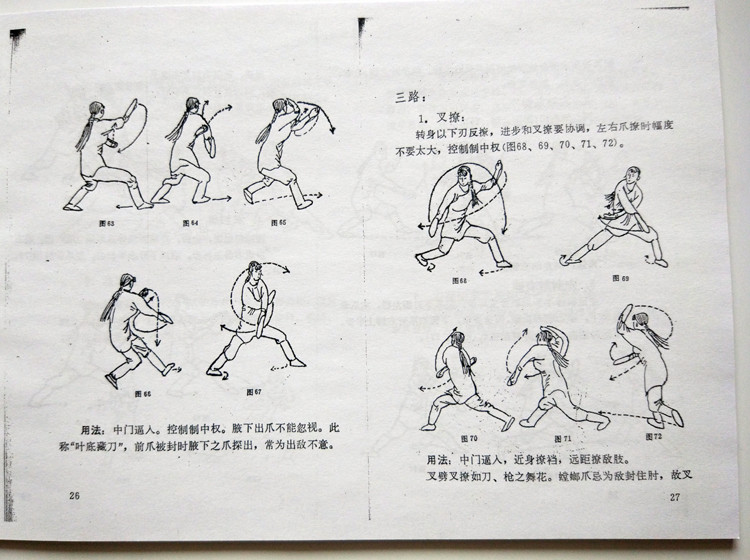 图63
图64
图65
图66
图67
用法：中门逼人。控制制中权。腋下出爪不能忽视。此
称“叶底藏刀”，前爪被封时腋下之爪探出，常为出敌不意。
26
三路：
1．叉撩：
转身以下刃反撩，进步和叉撩要协调，左右爪撩时幅度
不要太大，控制制中权(图68、69、70、71、72)。
图68
图69
图70
图71
图72
用法：中门逼人，近身撩裆，远距撩敌肢。
叉劈叉撩如刀、枪之舞花。螳螂爪忌为敌封住肘，故叉
27